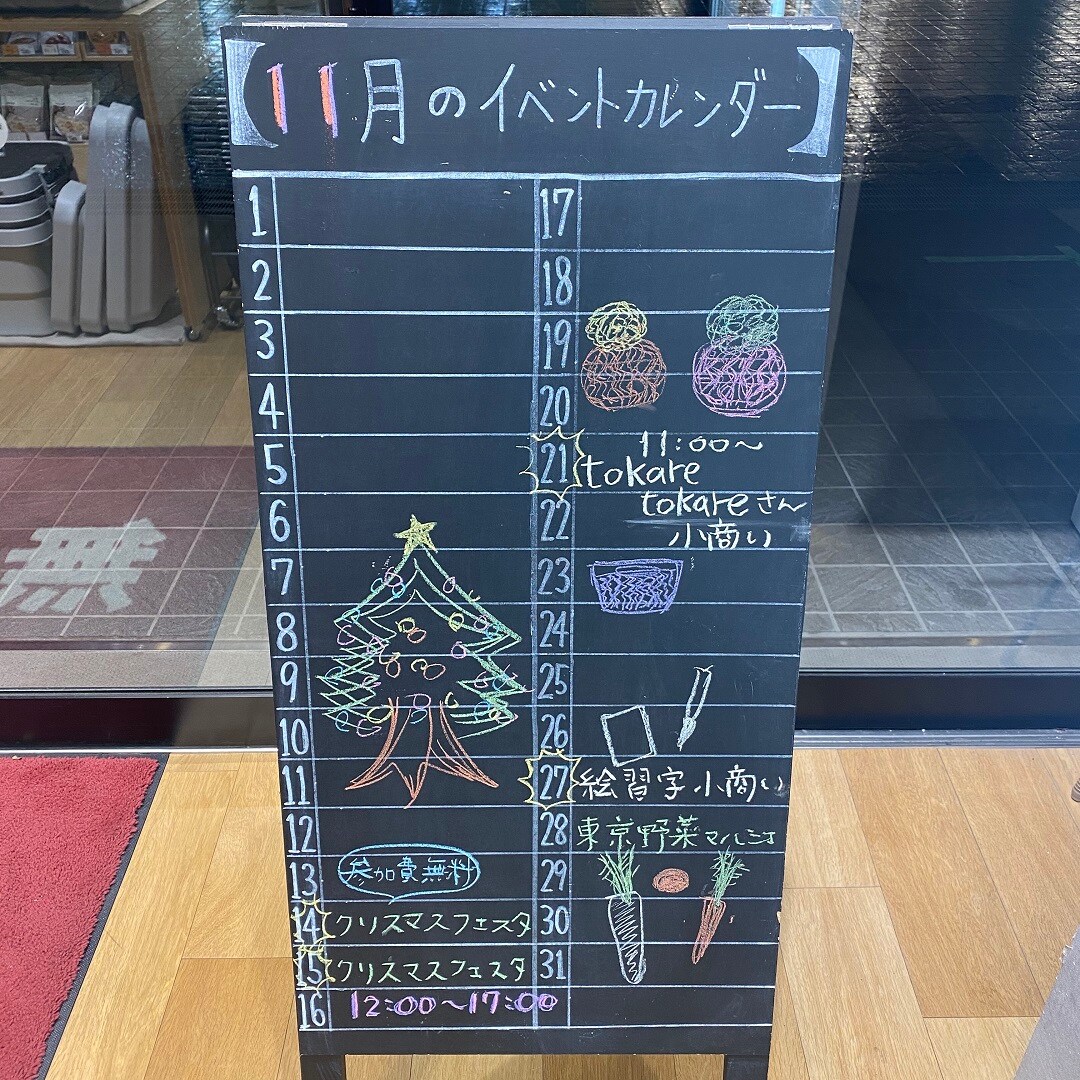 【11月のイベントカレンダー】
1
2
3
4
5
6
7
8
9
10
11
12
13 参加費無料
14 クリスマスフェスタ
15 クリスマスフェスタ
16 12:00〜17:00
17
18
19
20
21 11:00〜
tokare
tokareさん
22 小商い
23
24
25
26
27 絵習字小商い
28 東京野菜マルシェ
29
30
31
無